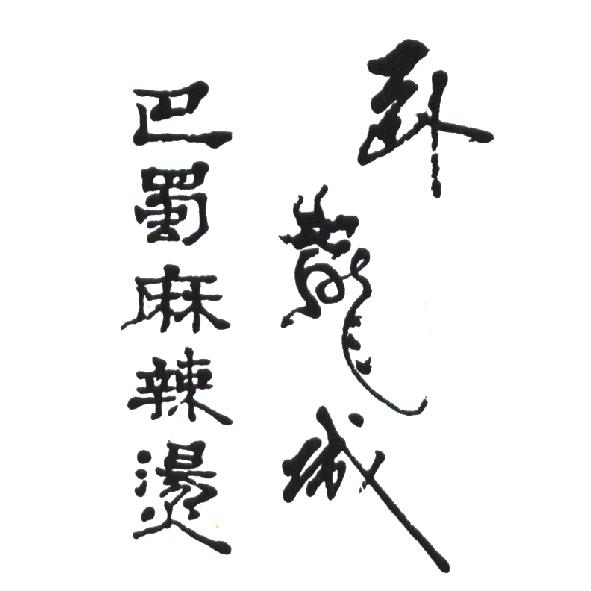 卧龍城
巴蜀麻辣燙